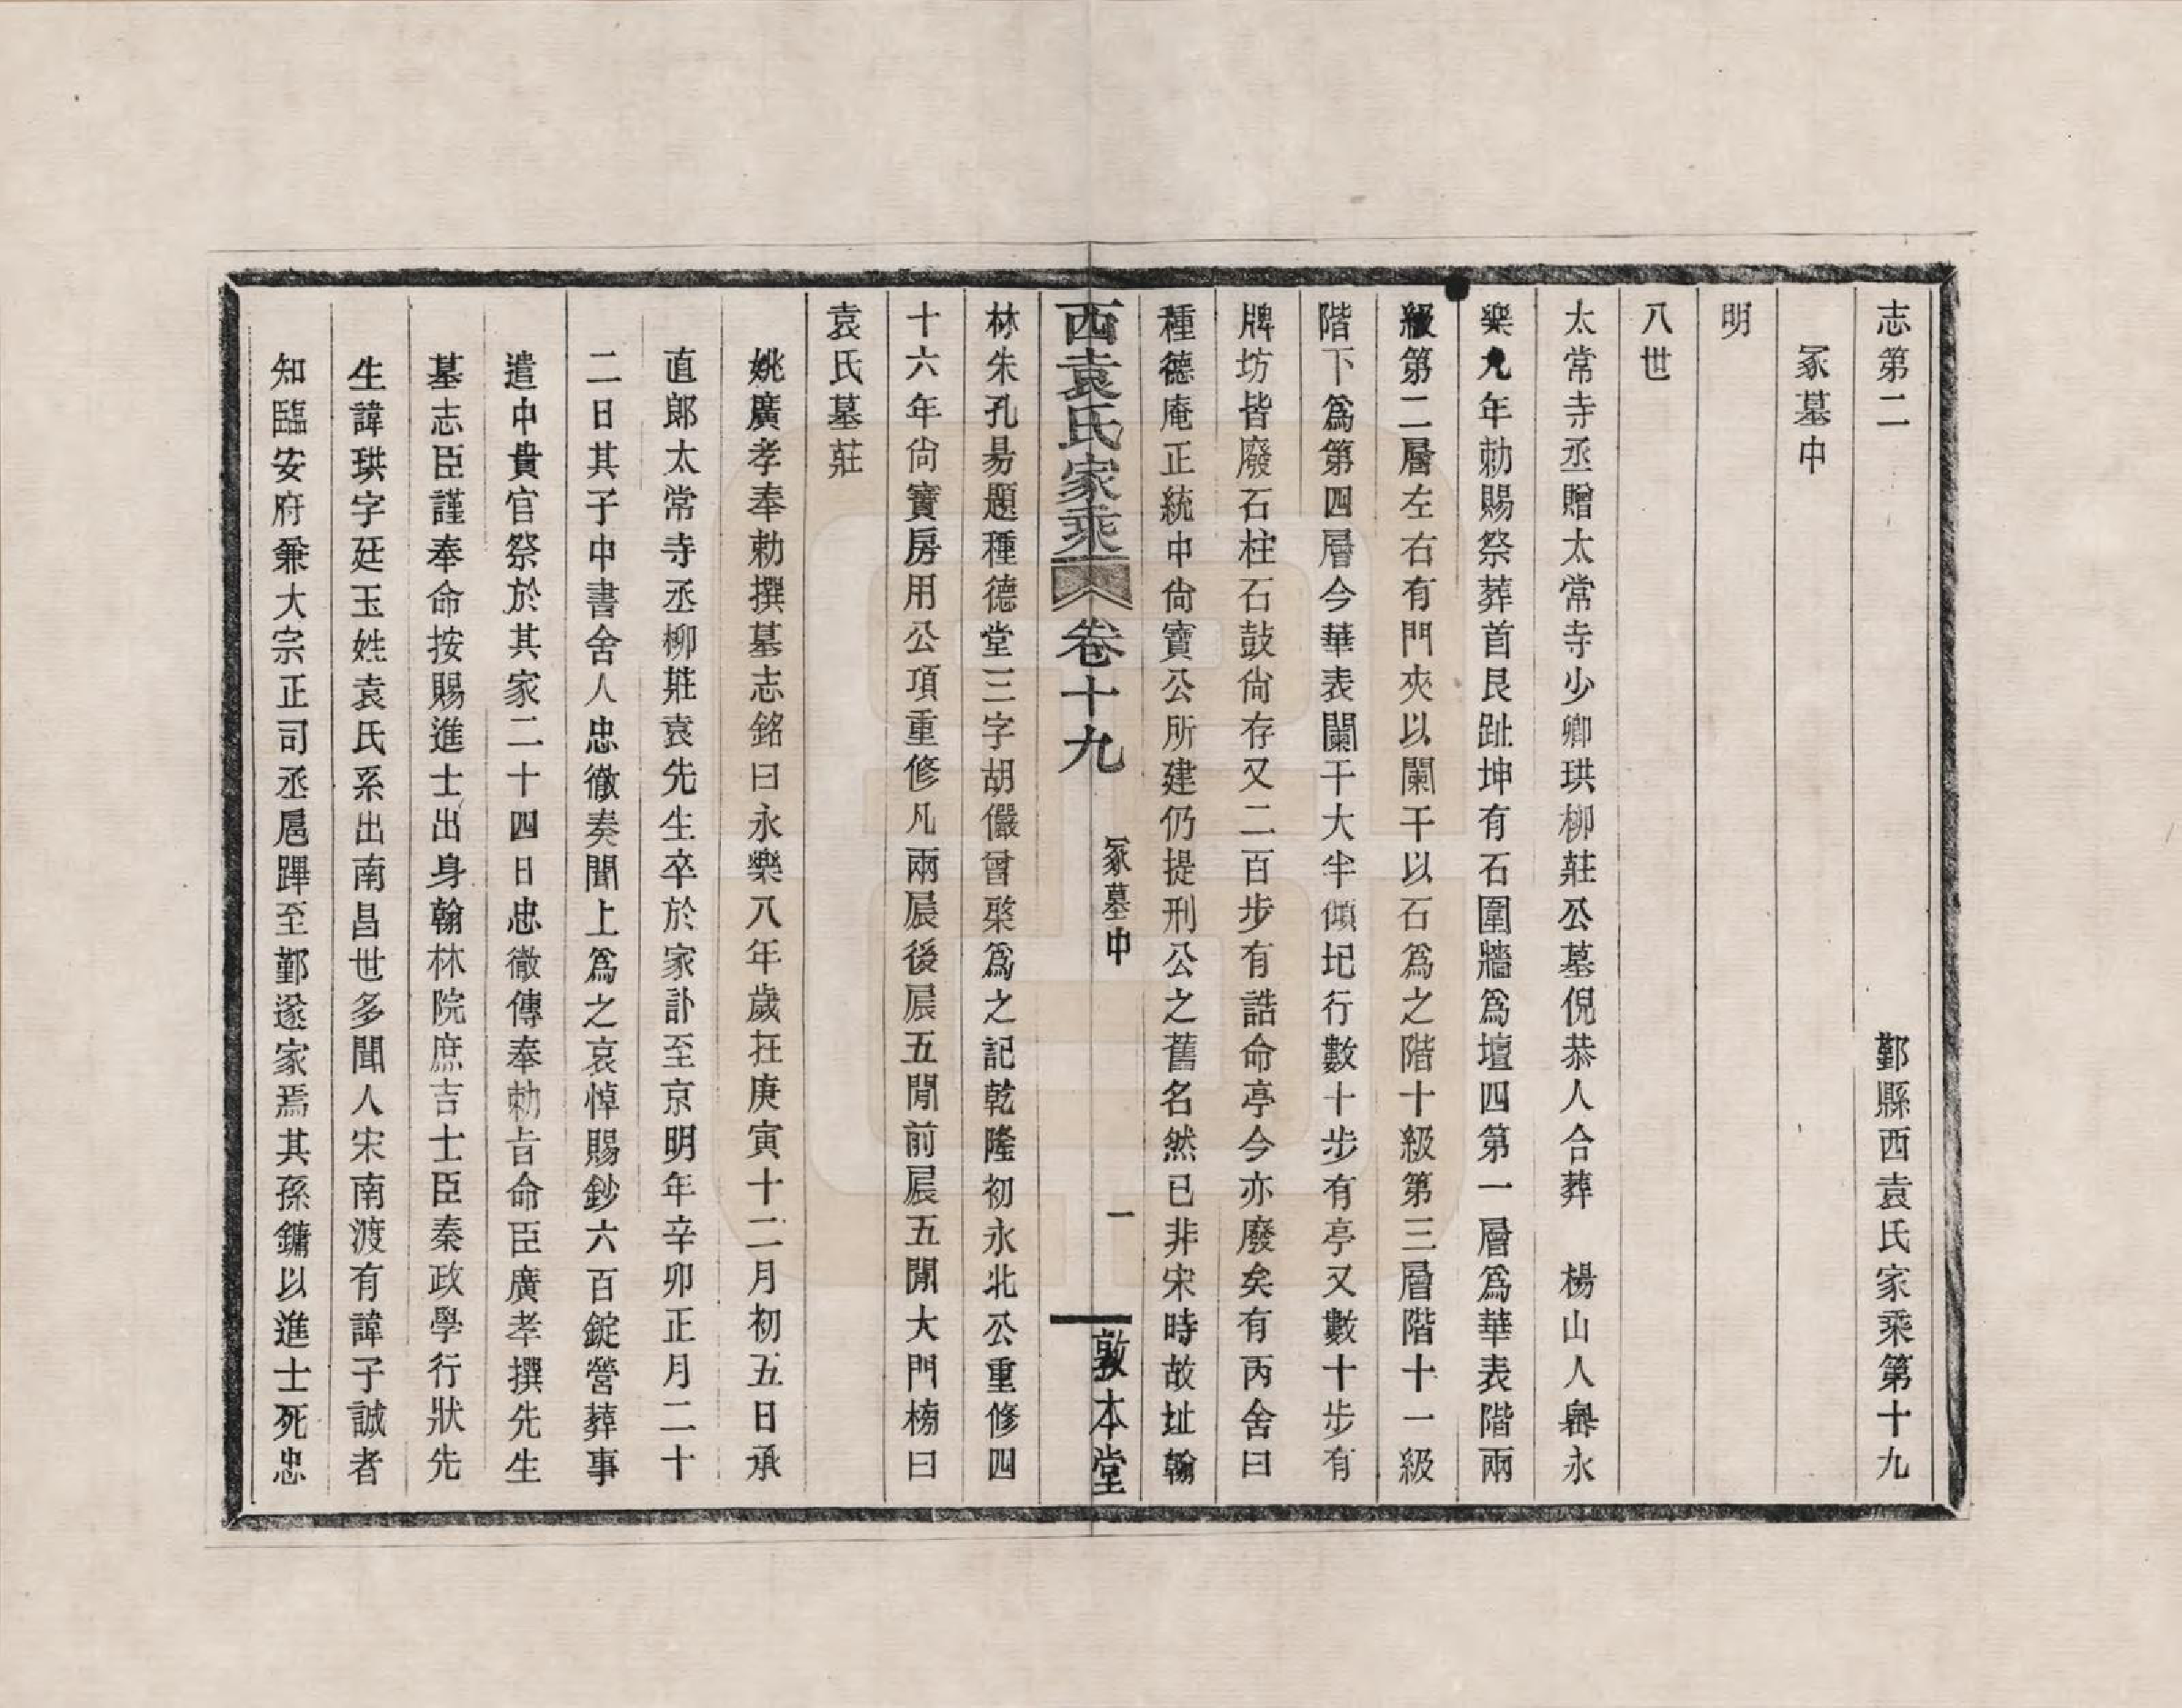 志第二　鄞縣西袁氏家乘第十九
冢墓中
明
八世
太常寺丞贈太常寺少卿珙柳莊公墓倪恭人合葬　楊山人嶴永
樂九年勅賜祭葬首艮趾坤有石圍牆爲壇四第一層爲華表階兩
級第二層左右有門夾以闌干以石爲之階十級第三層階十一級
階下爲第四層今華表闌干大半傾圮行數十步有亭又數十步有
牌坊皆廢石柱石鼓尙存又二百步有誥命亭今亦廢矣有丙舍曰
種德庵正統中尙寶公所建仍提刑公之舊名然已非宋時故址翰
西袁氏家乘　卷十九　冢墓中　一　敦本堂
林朱孔昜題種德堂三字胡儼曾棨爲之記乾隆初永北公重修四
十六年尙寶房用公項重修凡兩㞡後㞡五閒前㞡五閒大門榜曰
袁氏墓莊
姚廣孝奉勅撰墓志銘曰永樂八年歲在庚寅十二月初五日承
直郞太常寺丞柳莊袁先生卒於家訃至京明年辛卯正月二十
二日其子中書舍人忠徹奏聞上爲之哀悼賜鈔六百錠營葬事
遣中貴官祭於其家二十四日忠徹傳奉勅旨命臣廣孝撰先生
墓志臣謹奉命按賜進士出身翰林院庶吉士臣秦政學行狀先
生諱珙字廷玉姓袁氏系出南昌世多聞人宋南渡有諱子誠者
知臨安府兼大宗正司丞扈蹕至鄞遂家焉其孫鏞以進士死忠